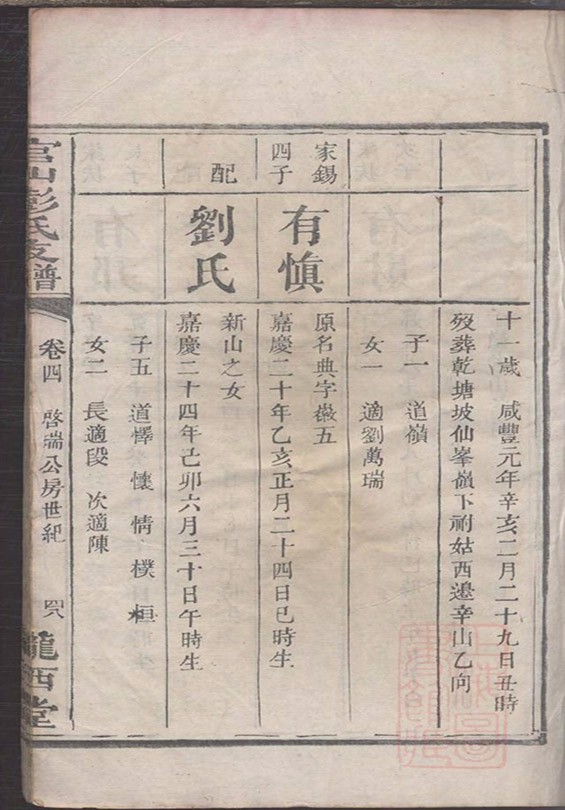 十一歲 咸豐元年辛亥二月二十九日丑時
歿葬乾塘坡仙峯嶺下祔姑西邉辛山乙向
子一 道嶺
女一 適劉萬瑞
家錫
四子
有慎
原名典字徽五
嘉慶二十年乙亥正月二十四日巳時生
配
劉氏
新山之女
嘉慶二十四年己卯六月三十日午時生
子五 道懌 懷 情 樸 桓
女二 長適段 次適陳
官山彭氏支譜
卷四 啓瑞公房世紀
隴西堂